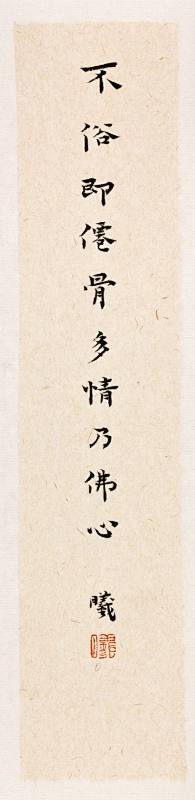 不俗即僊骨多情乃佛心
曦